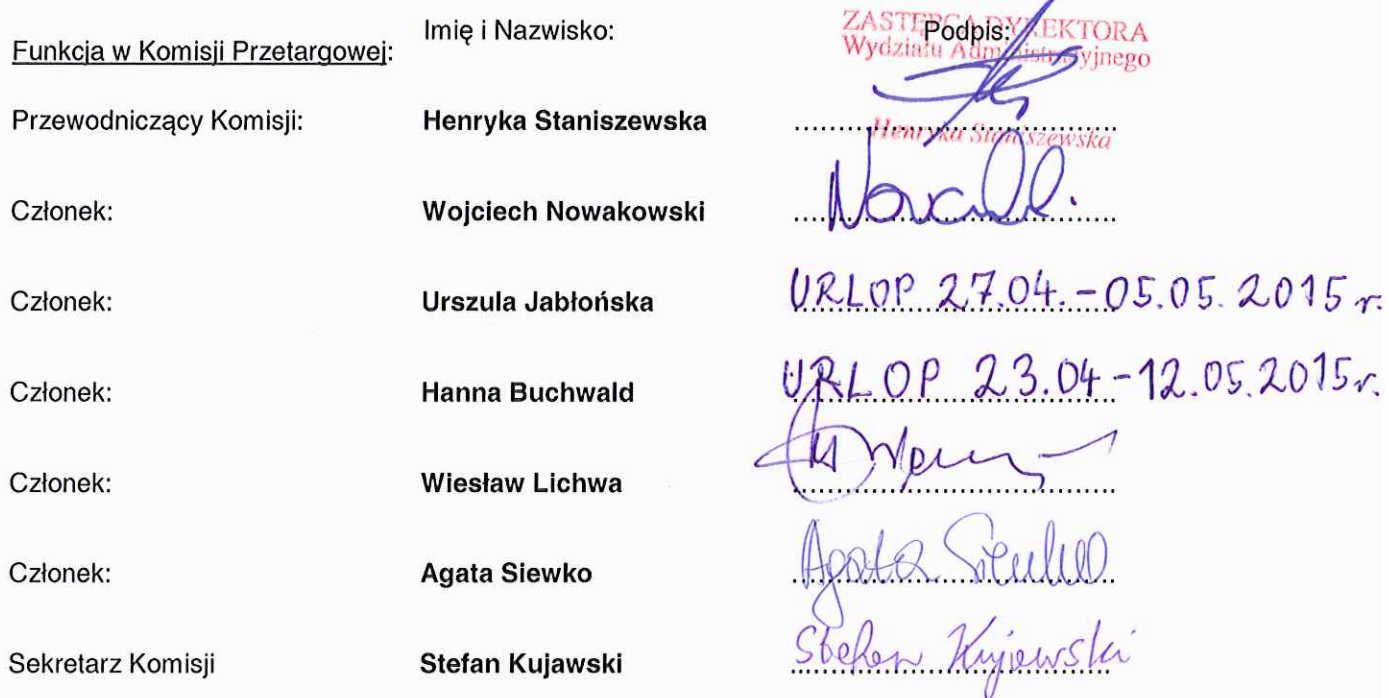 Funkcja w Komisji Przetargowej: Imię i Nazwisko: Podpis:
ZASTĘPCA DYREKTORA
Wydziału Administracyjnego
Przewodniczący Komisji: Henryka Staniszewska ........................................
Henryka Staniszewska
Członek: Wojciech Nowakowski ........................................
Członek: Urszula Jabłońska URLOP 27.04.-05.05.2015 r.
Członek: Hanna Buchwald URLOP 23.04-12.05.2015r.
Członek: Wiesław Lichwa ........................................
Członek: Agata Siewko Agata Siewko
Sekretarz Komisji Stefan Kujawski Stefan Kujawski